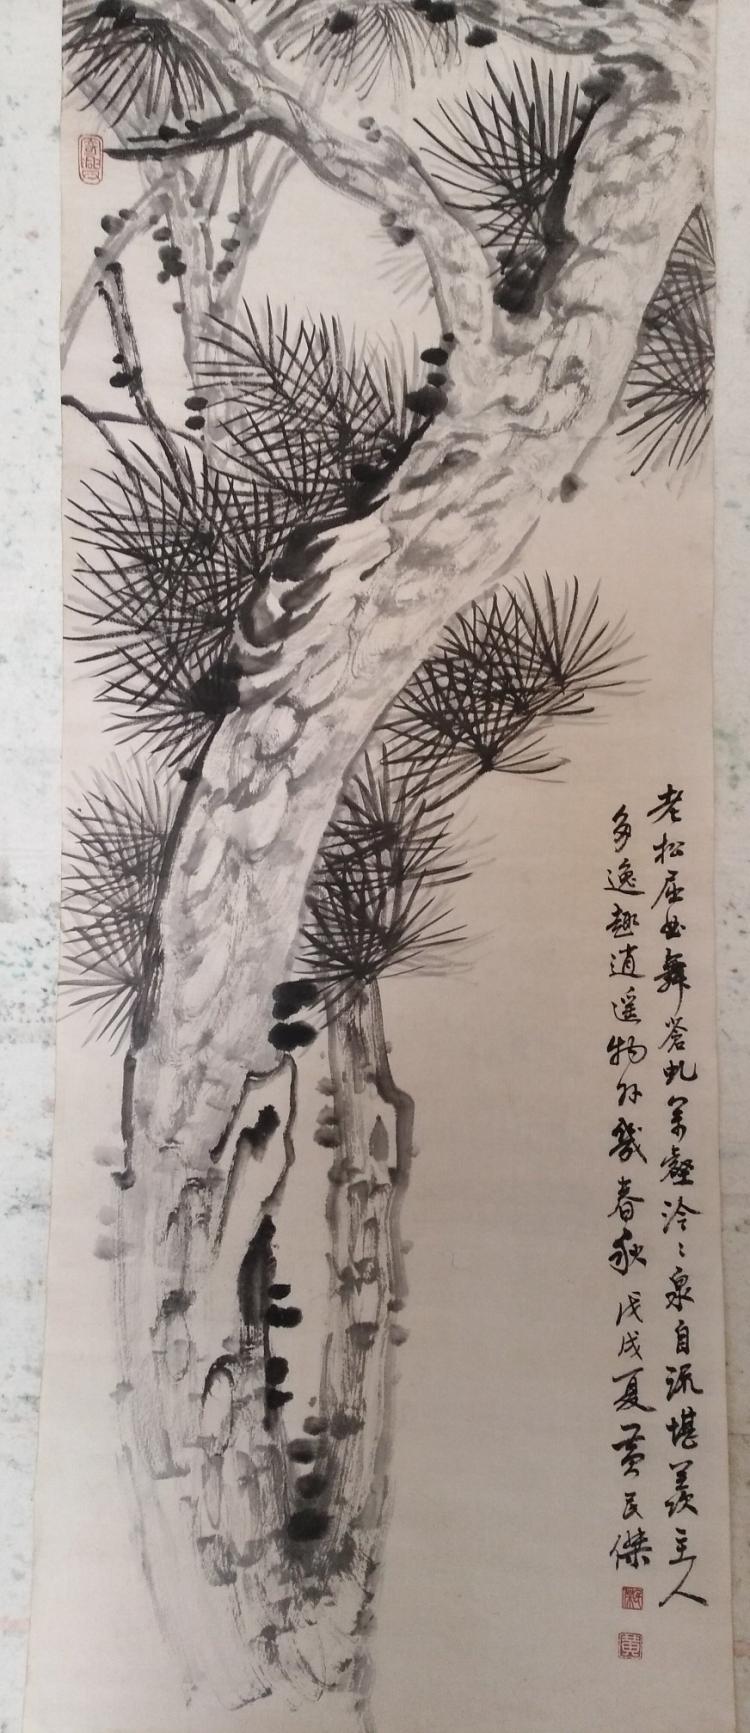 老松屈曲舞苍虬万壑泠泠泉自流堪羡主人
多逸趣逍遥物外几春秋戊戌夏黄民傑
黄